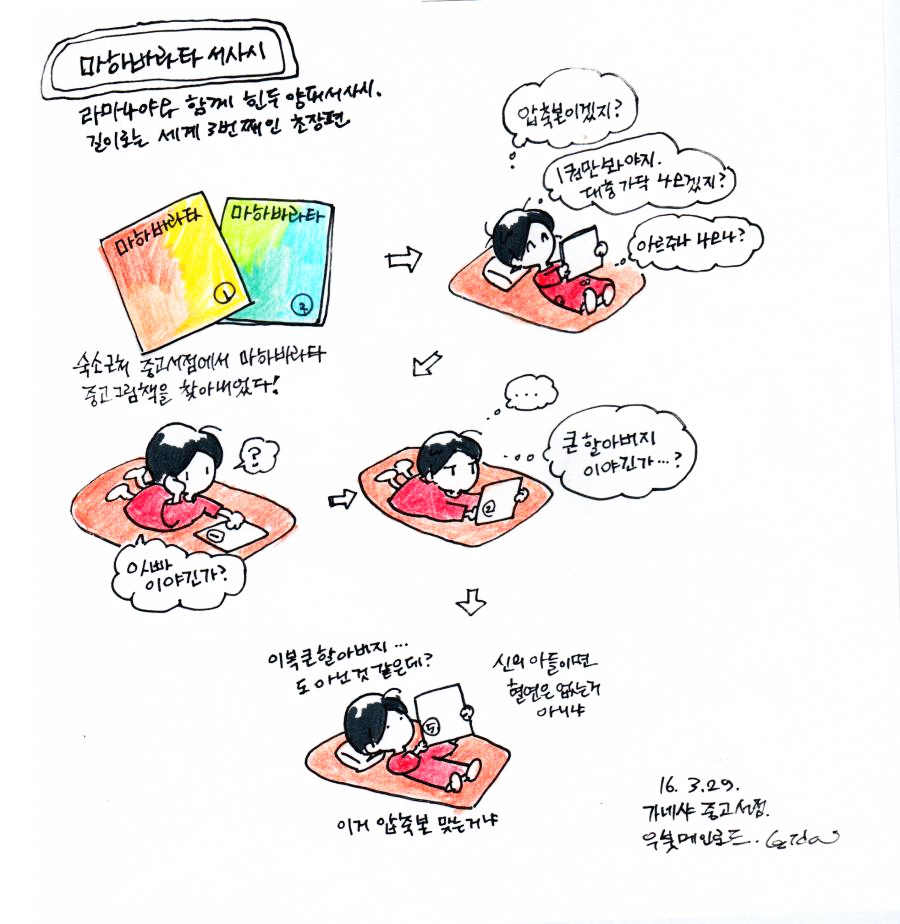 마하바라타 서사시
라마야나와 함께 힌두 양대서사시.
길이로는 세계 3번째인 초장편
마하바라타
1
마하바라타
숙소근처 중고서점에서 마하바라타
중고그림책을 찾아내었다!
압축본이겠지?
1권만봐야지.
대충 가닥 나오겠지?
아르주나 나오나?
?
1
아빠
이야긴가?
...
큰 할아버지
이야긴가...?
2
이복큰할아버지...
도 아닌것 같은데?
신의 아들이면
혈연은 없는거
아니냐
5
이거 압축본 맞는거냐
16. 3.29.
가네샤 중고서점.
우붓메인로드.